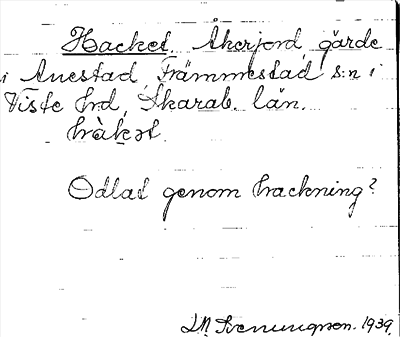 Hacket. Åkerjord, gärde
i Anestad, Främmestad s:n i
Viste hrd, Skarab. län.
hàkət.
Odlad genom hackning?
Svenungsson. 1939.